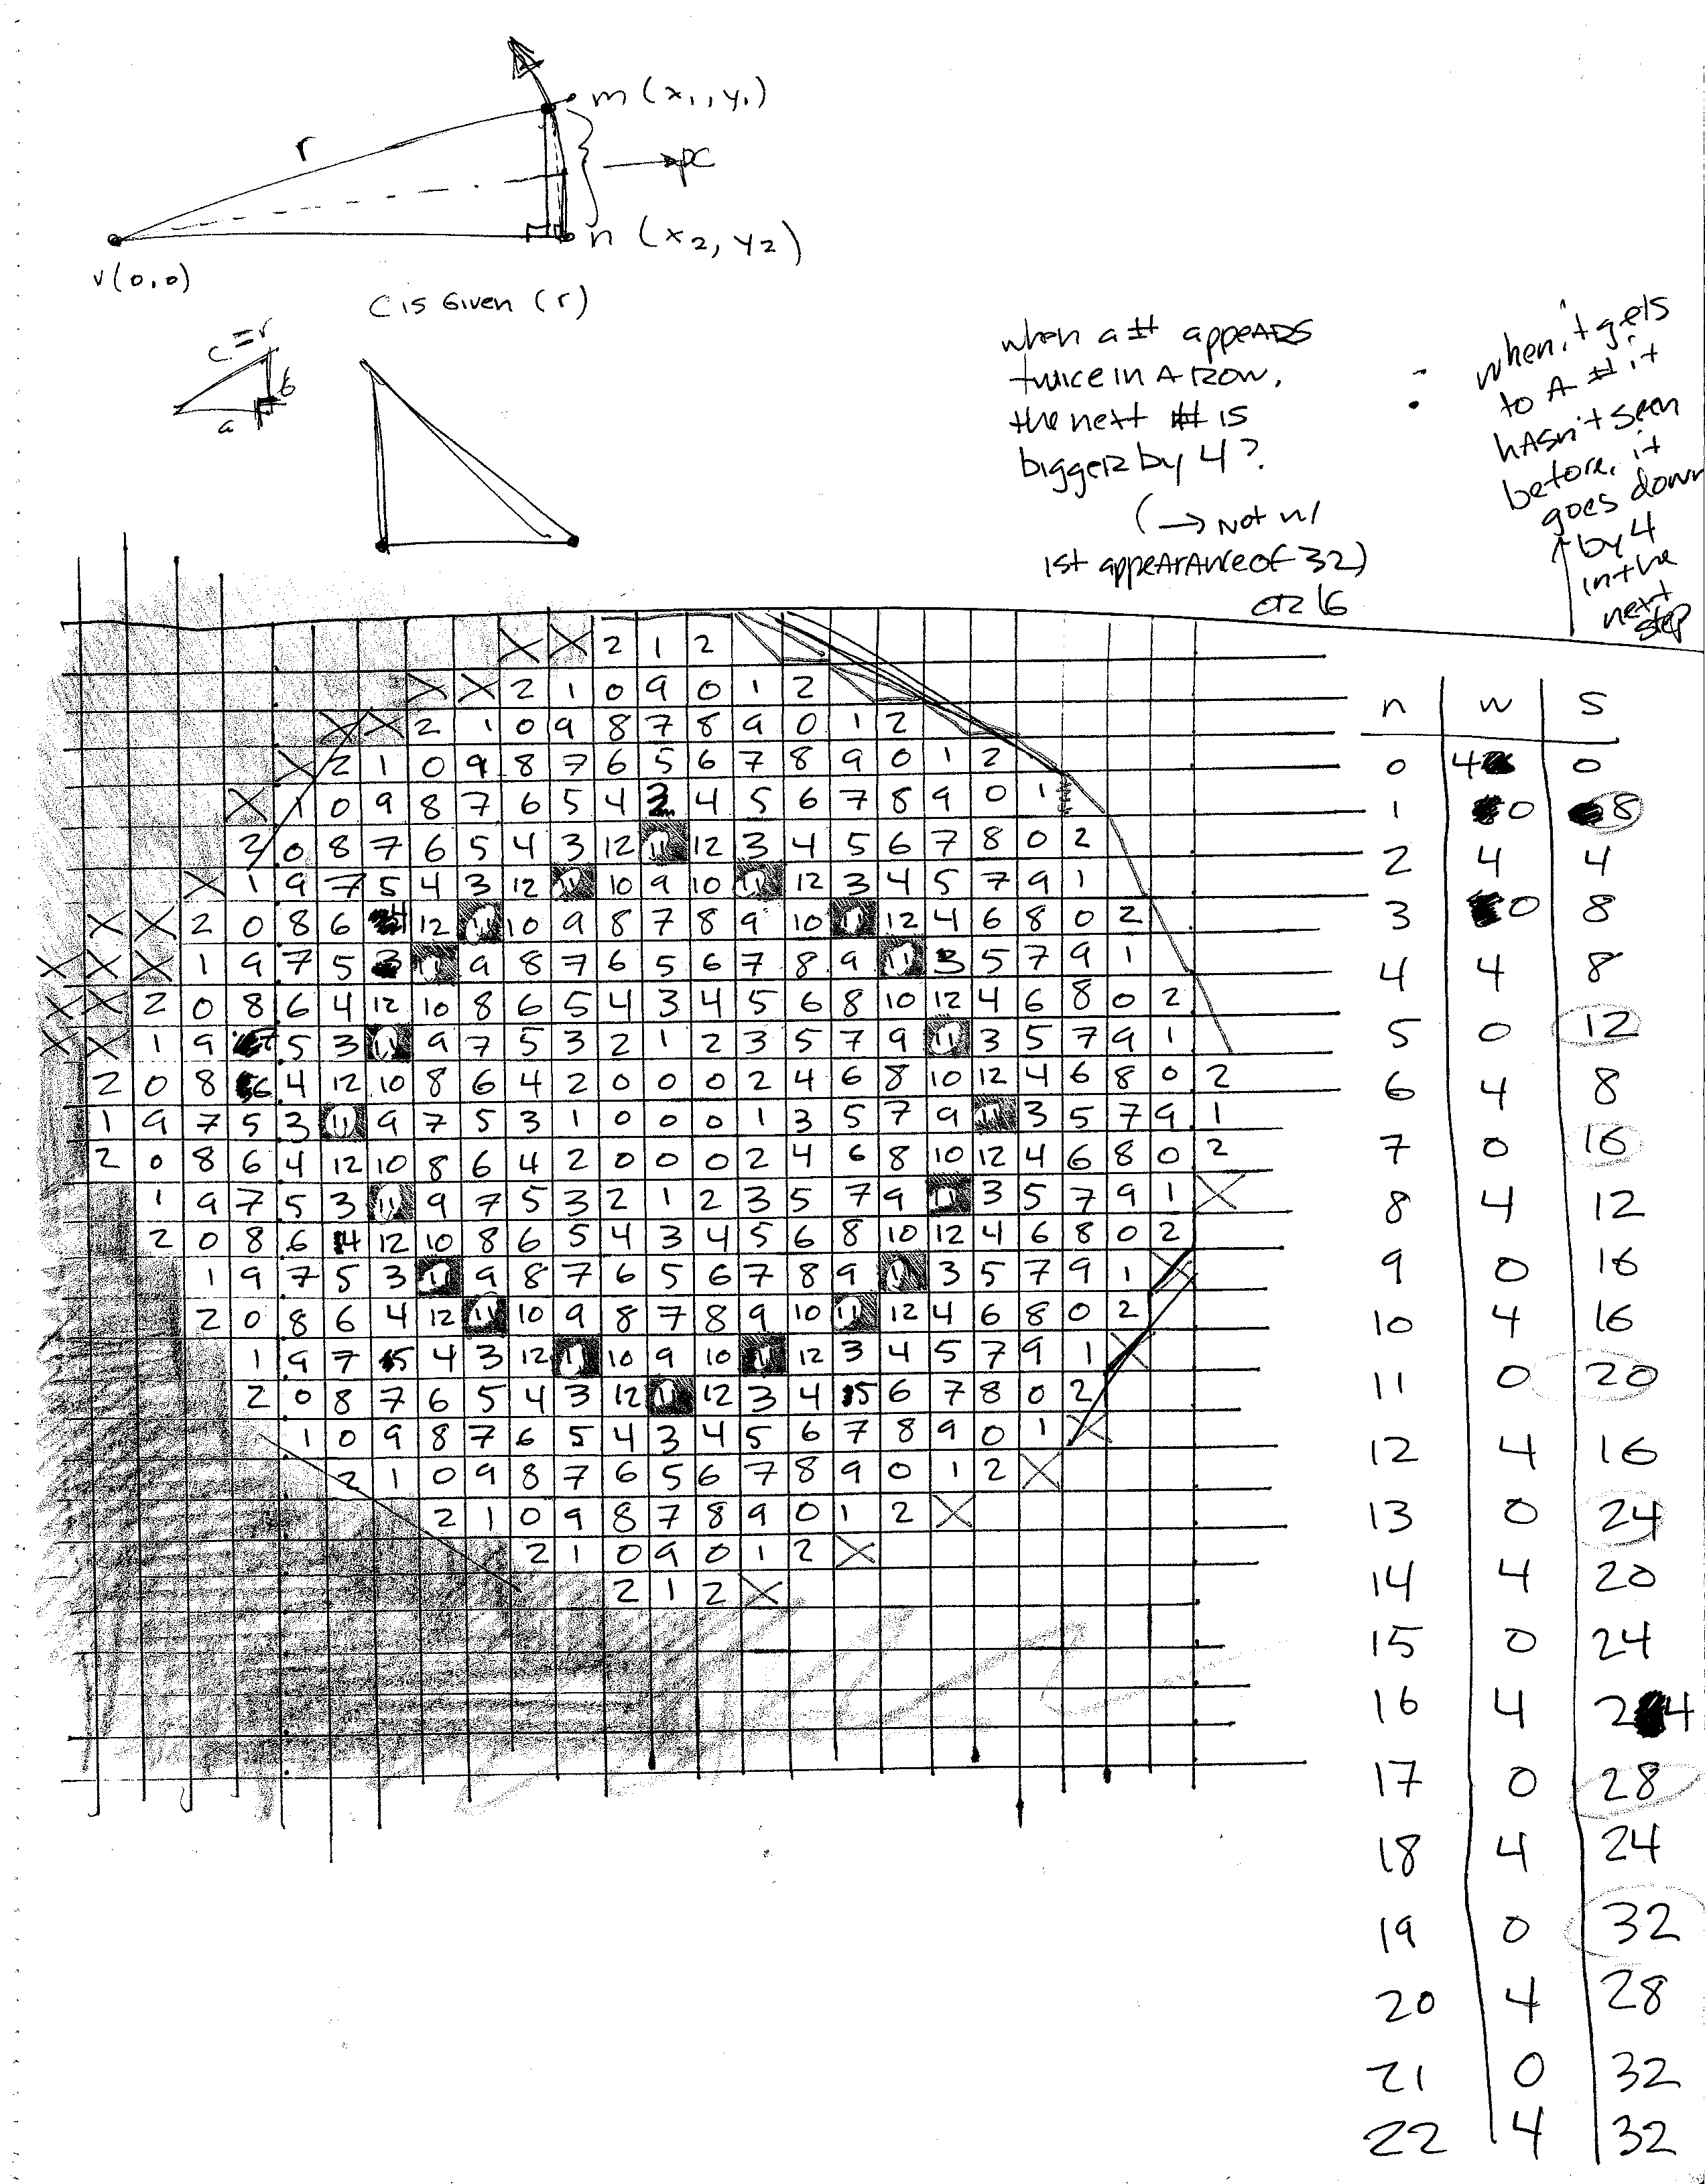 m (x₁, y₁)
r
→ pc
n (x₂, y₂)
v(0,0)
C is Given (r)
c=r
b
a
when a # appears
twice in a row,
the next # is
bigger by 4?
(→ Not w/
1st appearance of 32)
or 16
when it gets
to a # it
hasn't seen
before, it
goes down
by 4
in the
next
step
X X 2 1 2
X X 2 1 0 9 0 1 2
X X 2 1 0 9 8 7 8 9 0 1 2
X 2 1 0 9 8 7 6 5 6 7 8 9 0 1 2
X 1 0 9 8 7 6 5 4 3 4 5 6 7 8 9 0 1
2 0 8 7 6 5 4 3 12 11 12 3 4 5 6 7 8 0 2
X 1 9 7 5 4 3 12 11 10 9 10 11 12 3 4 5 7 9 1
X X 2 0 8 6 4 12 11 10 9 8 7 8 9 10 11 12 4 6 8 0 2
X X X 1 9 7 5 3 11 9 8 7 6 5 6 7 8 9 11 3 5 7 9 1
X X 2 0 8 6 4 12 10 8 6 5 4 3 4 5 6 8 10 12 4 6 8 0 2
X X 1 9 7 5 3 11 9 7 5 3 2 1 2 3 5 7 9 11 3 5 7 9 1
2 0 8 6 4 12 10 8 6 4 2 0 0 0 2 4 6 8 10 12 4 6 8 0 2
1 9 7 5 3 11 9 7 5 3 1 0 0 0 1 3 5 7 9 11 3 5 7 9 1
2 0 8 6 4 12 10 8 6 4 2 0 0 0 2 4 6 8 10 12 4 6 8 0 2
1 9 7 5 3 11 9 7 5 3 2 1 2 3 5 7 9 11 3 5 7 9 1 X
2 0 8 6 4 12 10 8 6 5 4 3 4 5 6 8 10 12 4 6 8 0 2
1 9 7 5 3 11 9 8 7 6 5 6 7 8 9 11 3 5 7 9 1 X
2 0 8 6 4 12 11 10 9 8 7 8 9 10 11 12 4 6 8 0 2
1 9 7 5 4 3 12 11 10 9 10 11 12 3 4 5 7 9 1 X
2 0 8 7 6 5 4 3 12 11 12 3 4 5 6 7 8 0 2
1 0 9 8 7 6 5 4 3 4 5 6 7 8 9 0 1 X
2 1 0 9 8 7 6 5 6 7 8 9 0 1 2 X
2 1 0 9 8 7 8 9 0 1 2 X
2 1 0 9 0 1 2 X
2 1 2 X
n w s
0 4 0
1 0 8
2 4 4
3 0 8
4 4 8
5 0 12
6 4 8
7 0 16
8 4 12
9 0 16
10 4 16
11 0 20
12 4 16
13 0 24
14 4 20
15 0 24
16 4 24
17 0 28
18 4 24
19 0 32
20 4 28
21 0 32
22 4 32